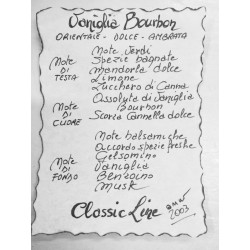 Vaniglia Bourbon
ORIENTALE - DOLCE - AMBRATA
NOTE DI TESTA
Note Verdi
Spezie bagnate
Mandorla dolce
Limone
Zucchero di Canna
NOTE DI CUORE
Assoluta di Vaniglia
Bourbon
Scorza Cannella dolce
NOTE DI FONDO
Note balsamiche
Accordo spezie fresche
Gelsomino
Vaniglia
Benzoino
Musk
Classic Line
2003